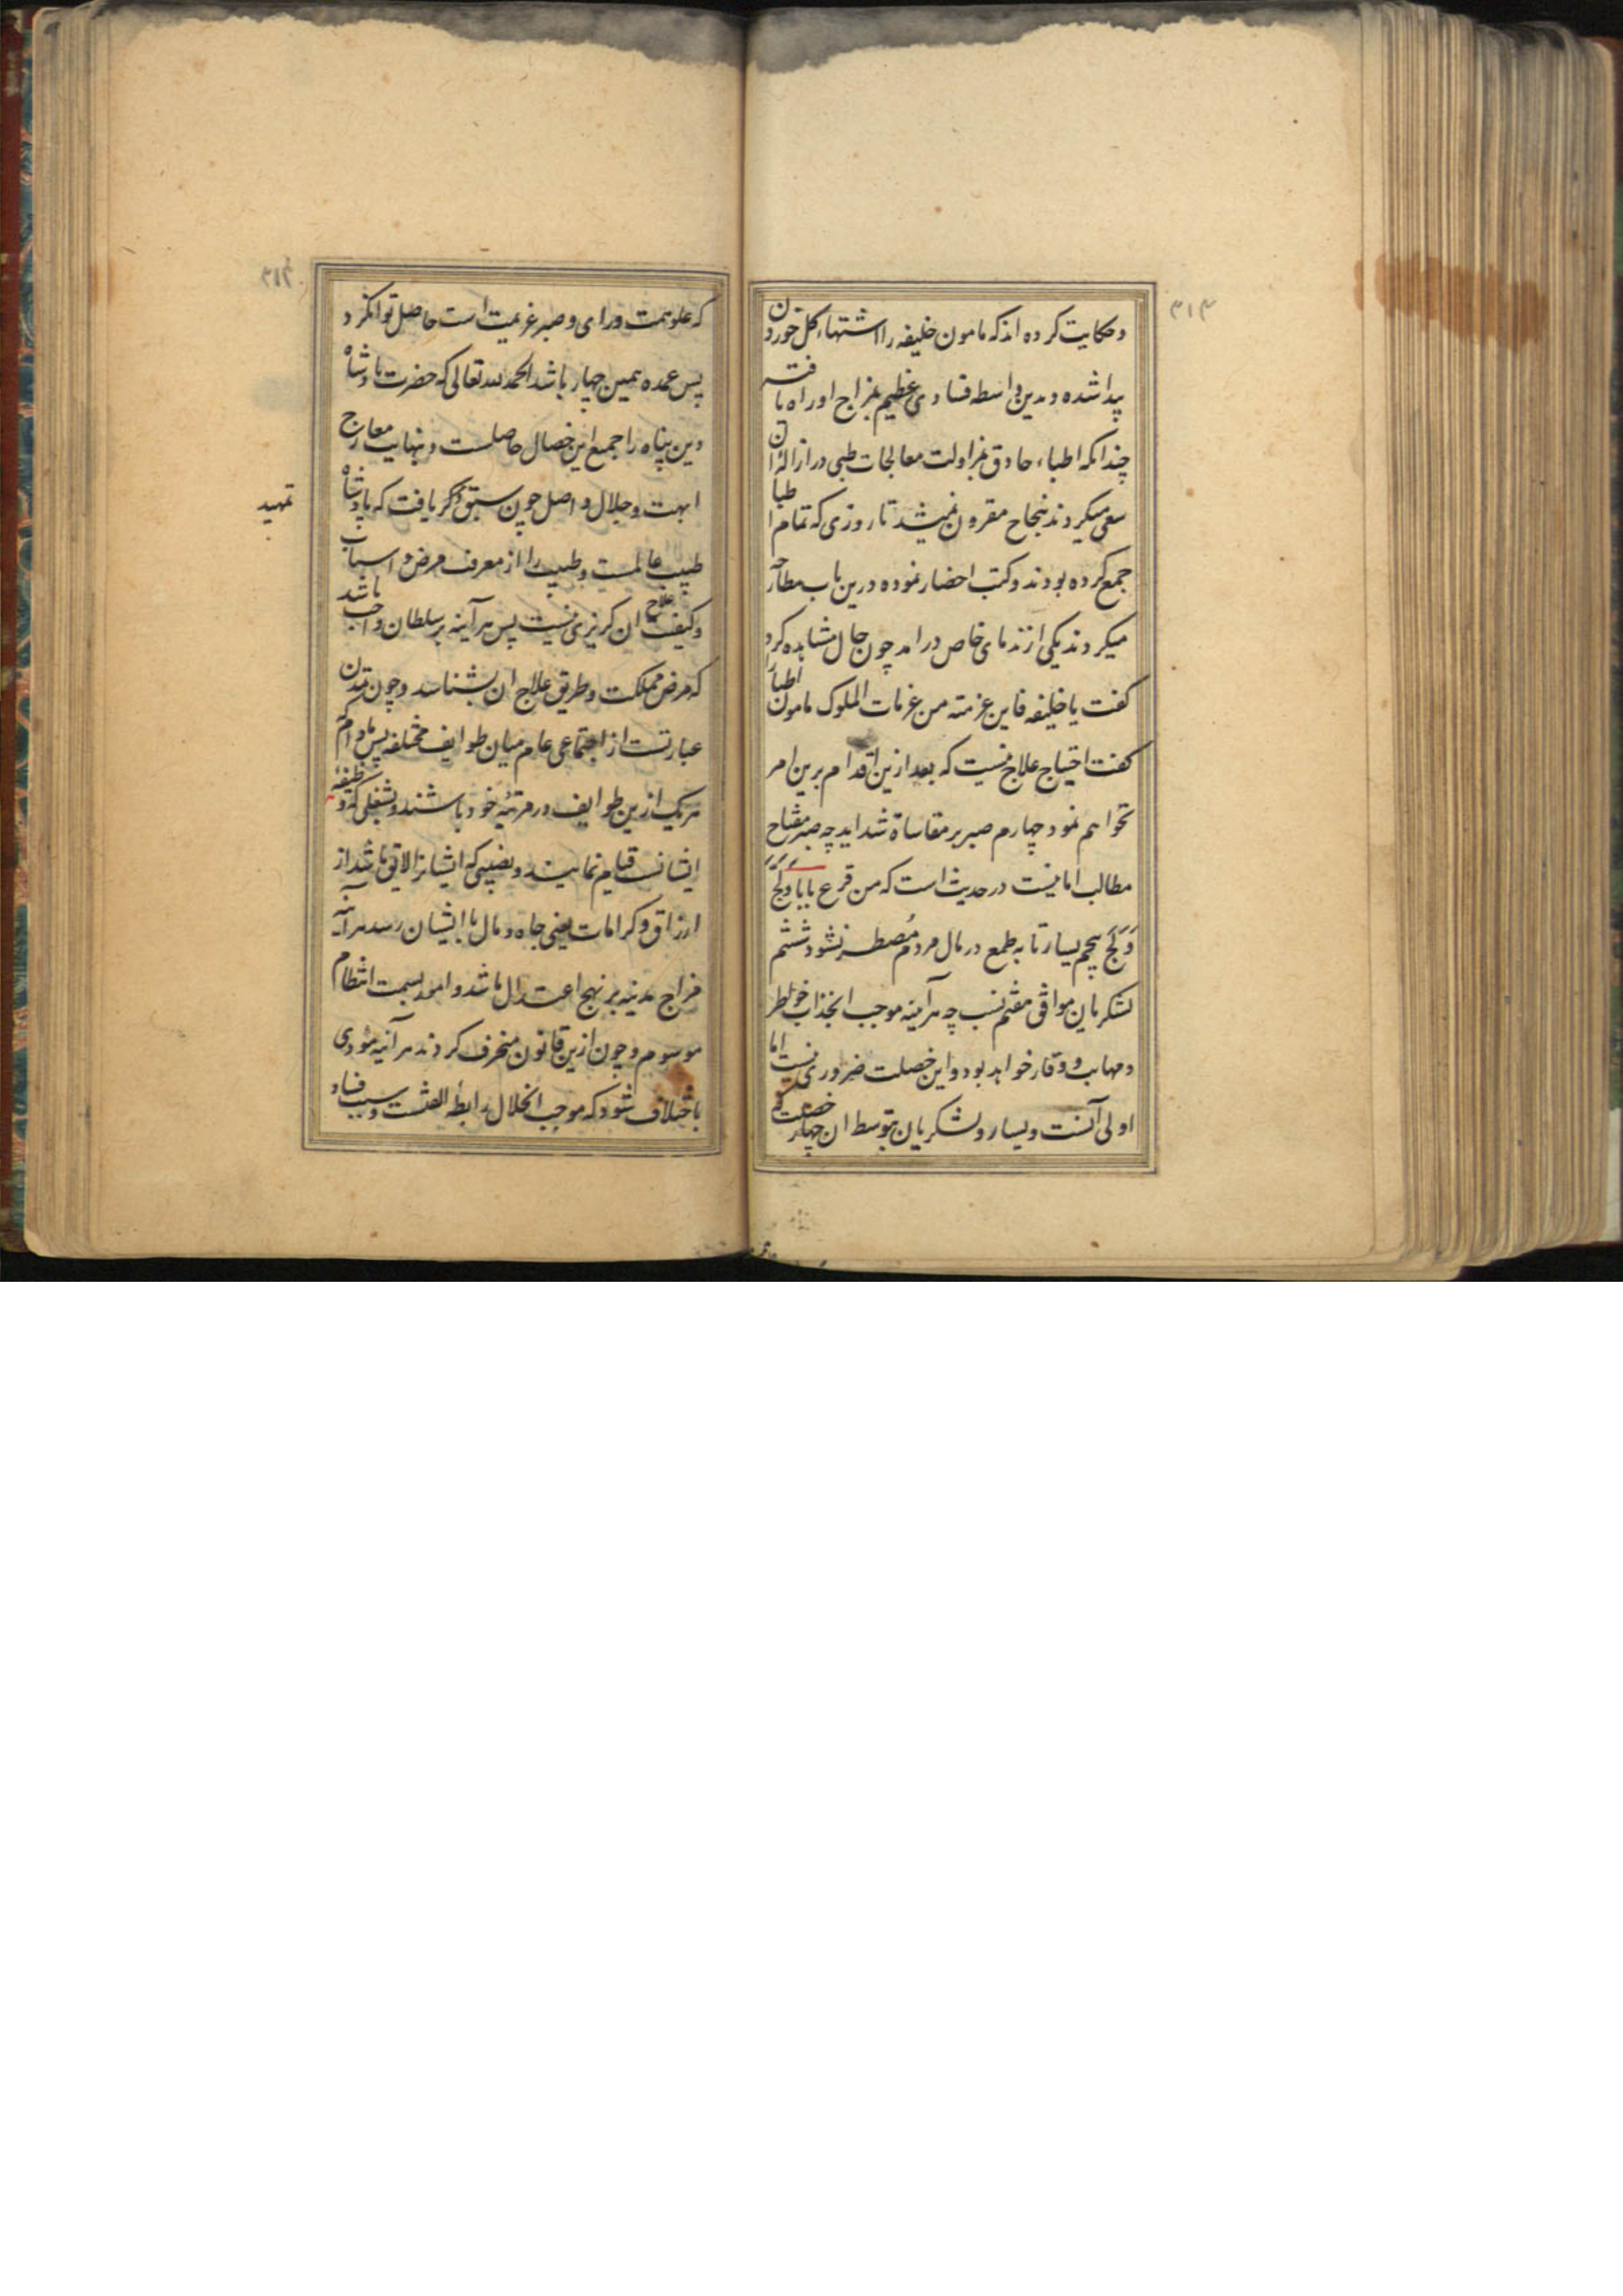 ۳۱۳
و حکایت کرده اند که مامون خلیفه را اشتهاء کل خوردن
پیدا شده و بدین واسطه فسادی عظیم بمزاج او راه یافته
چندانکه اطباء حاذق بمزاولت معالجات طبی در ازالهٔ ان
سعی میکردند بنجاح مقرون نمیشد تا روزی که تمام اطبا
جمع کرده بودند و کتب احضار نموده درین باب مطارحه
میکردند یکی از ندمای خاص در امد چون حال مشاهده کرد
کفت یا خلیفه فاین عزمته من عزمات الملوک مامون اطبا را
کفت احتیاج علاج نیست که بعد ازین اقدام برین امر
نخواهم نمود چهارم صبر بر مقاساة شداید چه صبر مفتاح
مطالب امانیست در حدیث است که من قرع بابا و لجّ
وَلَجَ پنجم یسار تا به طمع در مال مردم مُضطر نشود ششم
لشکریان موافق هفتم نسب چه هر آینه موجب انجذاب خواطر
و مهابت و وقار خواهد بود و این خصلت ضروری نیست اما
اولی آنست و یسار و لشکریان بتوسط ان چهار خصلت
که علو همت و رای و صبر عزیمت است حاصل توان کرد
پس عمده همین چهار باشد الحمد لله تعالی که حضرت پادشاه
دین پناه را جمیع این خصال حاصلست و بنهایت معارج
ابهت و جلال واصل چون سبق ذکر یافت که پادشاه
تمهید
طبیب عالمست و طبیب را از معرفت مرض و اسباب
و کیفیت علاج ان کریزی نیست پس هر آینه بر سلطان واجب باشد
که مرض مملکت و طریق علاج ان بشناسد و چون تمدن
عبارتست از اجتماعی عام میان طوایف مختلفه پس مادام که
هر یک ازین طوایف در مرتبهٔ خود باشند و بشغلی که وظیفهٔ
ایشانست قیام نمایند و نصیبی که ایشانرا لایق باشد از
ارزاق و کرامات یعنی جاه و مال با ایشان رسد هر آینه
مزاج مدینه بر نهج اعتدال باشد و امور بسمت انتظام
موسوم و چون ازین قانون منحرف کردند هر آینه مؤدی
باختلاف شود که موجب انحلال رابطهٔ الفتست و سبب فساد